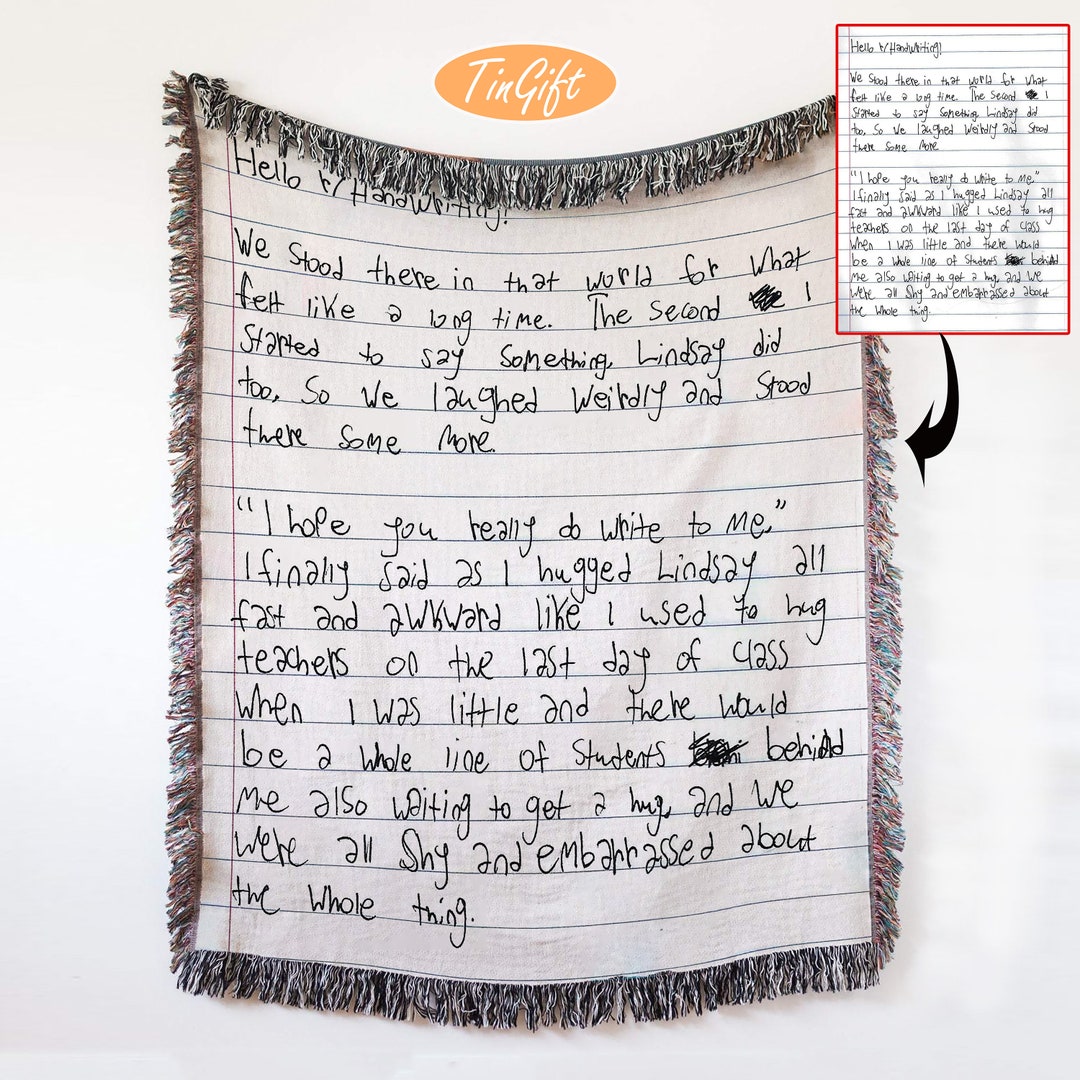 TinGift
Hello r/Handwriting!
We stood there in that world for what
felt like a long time. The second I
started to say something, Lindsay did
too. So we laughed weirdly and stood
there some more.
"I hope you really do write to me."
I finally said as I hugged Lindsay all
fast and awkward like I used to hug
teachers on the last day of class
when I was little and there would
be a whole line of students behind
me also waiting to get a hug, and we
were all shy and embarrassed about
the whole thing.
Hello r/Handwriting!
We stood there in that world for what
felt like a long time. The second I
started to say something, Lindsay did
too. So we laughed weirdly and stood
there some more.
"I hope you really do write to me."
I finally said as I hugged Lindsay all
fast and awkward like I used to hug
teachers on the last day of class
when I was little and there would
be a whole line of students behind
me also waiting to get a hug, and we
were all shy and embarrassed about
the whole thing.